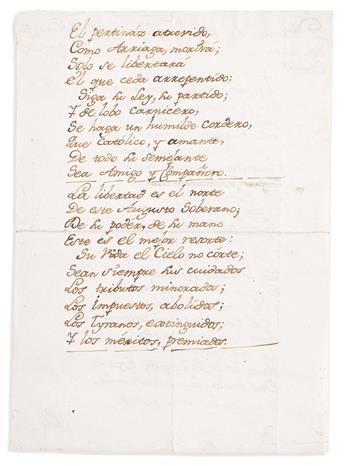 El pertináz atrevido,
Como Arriaga, morirá;
Solo se libertará
el que ceda arrepentido:
Siga su Ley, su partido;
Y de lobo carnicero,
Se haga un humilde Cordero,
Que Católico, y amante,
De todo su semejante
Sea Amigo y Compañero.
La libertad es el norte
De este Augusto Soberano;
De su poder, de su mano
Este es el mejor resorte:
Su Vida el Cielo no córte;
Sean siempre sus cuidados
Los tributos minorados;
Los impuestos, abolidos;
Los Tyranos, extinguidos;
Y los méritos, premiados.